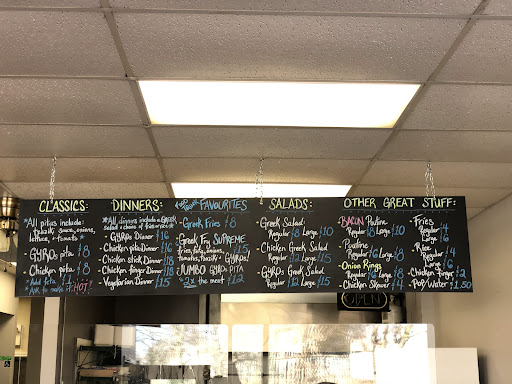 CLASSICS:
*All pitas include:
tzatziki sauce, onions,
lettuce, + tomato*
GYROs pita $8
Chicken pita $8
*Add feta
Ask to make it HOT!
DINNERS:
*All dinners include a GREEK
salad + choice of fries or rice*
- GYROs Dinner $16
- Chicken pita Dinner $16
- Chicken stick Dinner $18
- Chicken finger Dinner $18
- Vegetarian Dinner $15
Food Truck FAVOURITES
- Greek Fries $8
- Greek Fry SUPREME $15
fries, feta, onions,
tomatoes, tzatziki + GYROs!
- JUMBO GYRO PITA
*2x the meat $12
SALADS:
- Greek Salad:
Regular $8 Large $10
- Chicken Greek Salad
Regular $12 Large $15
- GYROs Greek Salad
Regular $12 Large $15
OTHER GREAT STUFF:
- BACON Poutine
Regular $8 Large $10
- Poutine
Regular $6 Large $8
- Onion Rings
Regular $6 Large $8
- Chicken Skewer $4
- Fries
Regular $4
Large $6
- Rice
Regular $4
- Chicken finger $2
- Pop/Water $1.50
OPEN